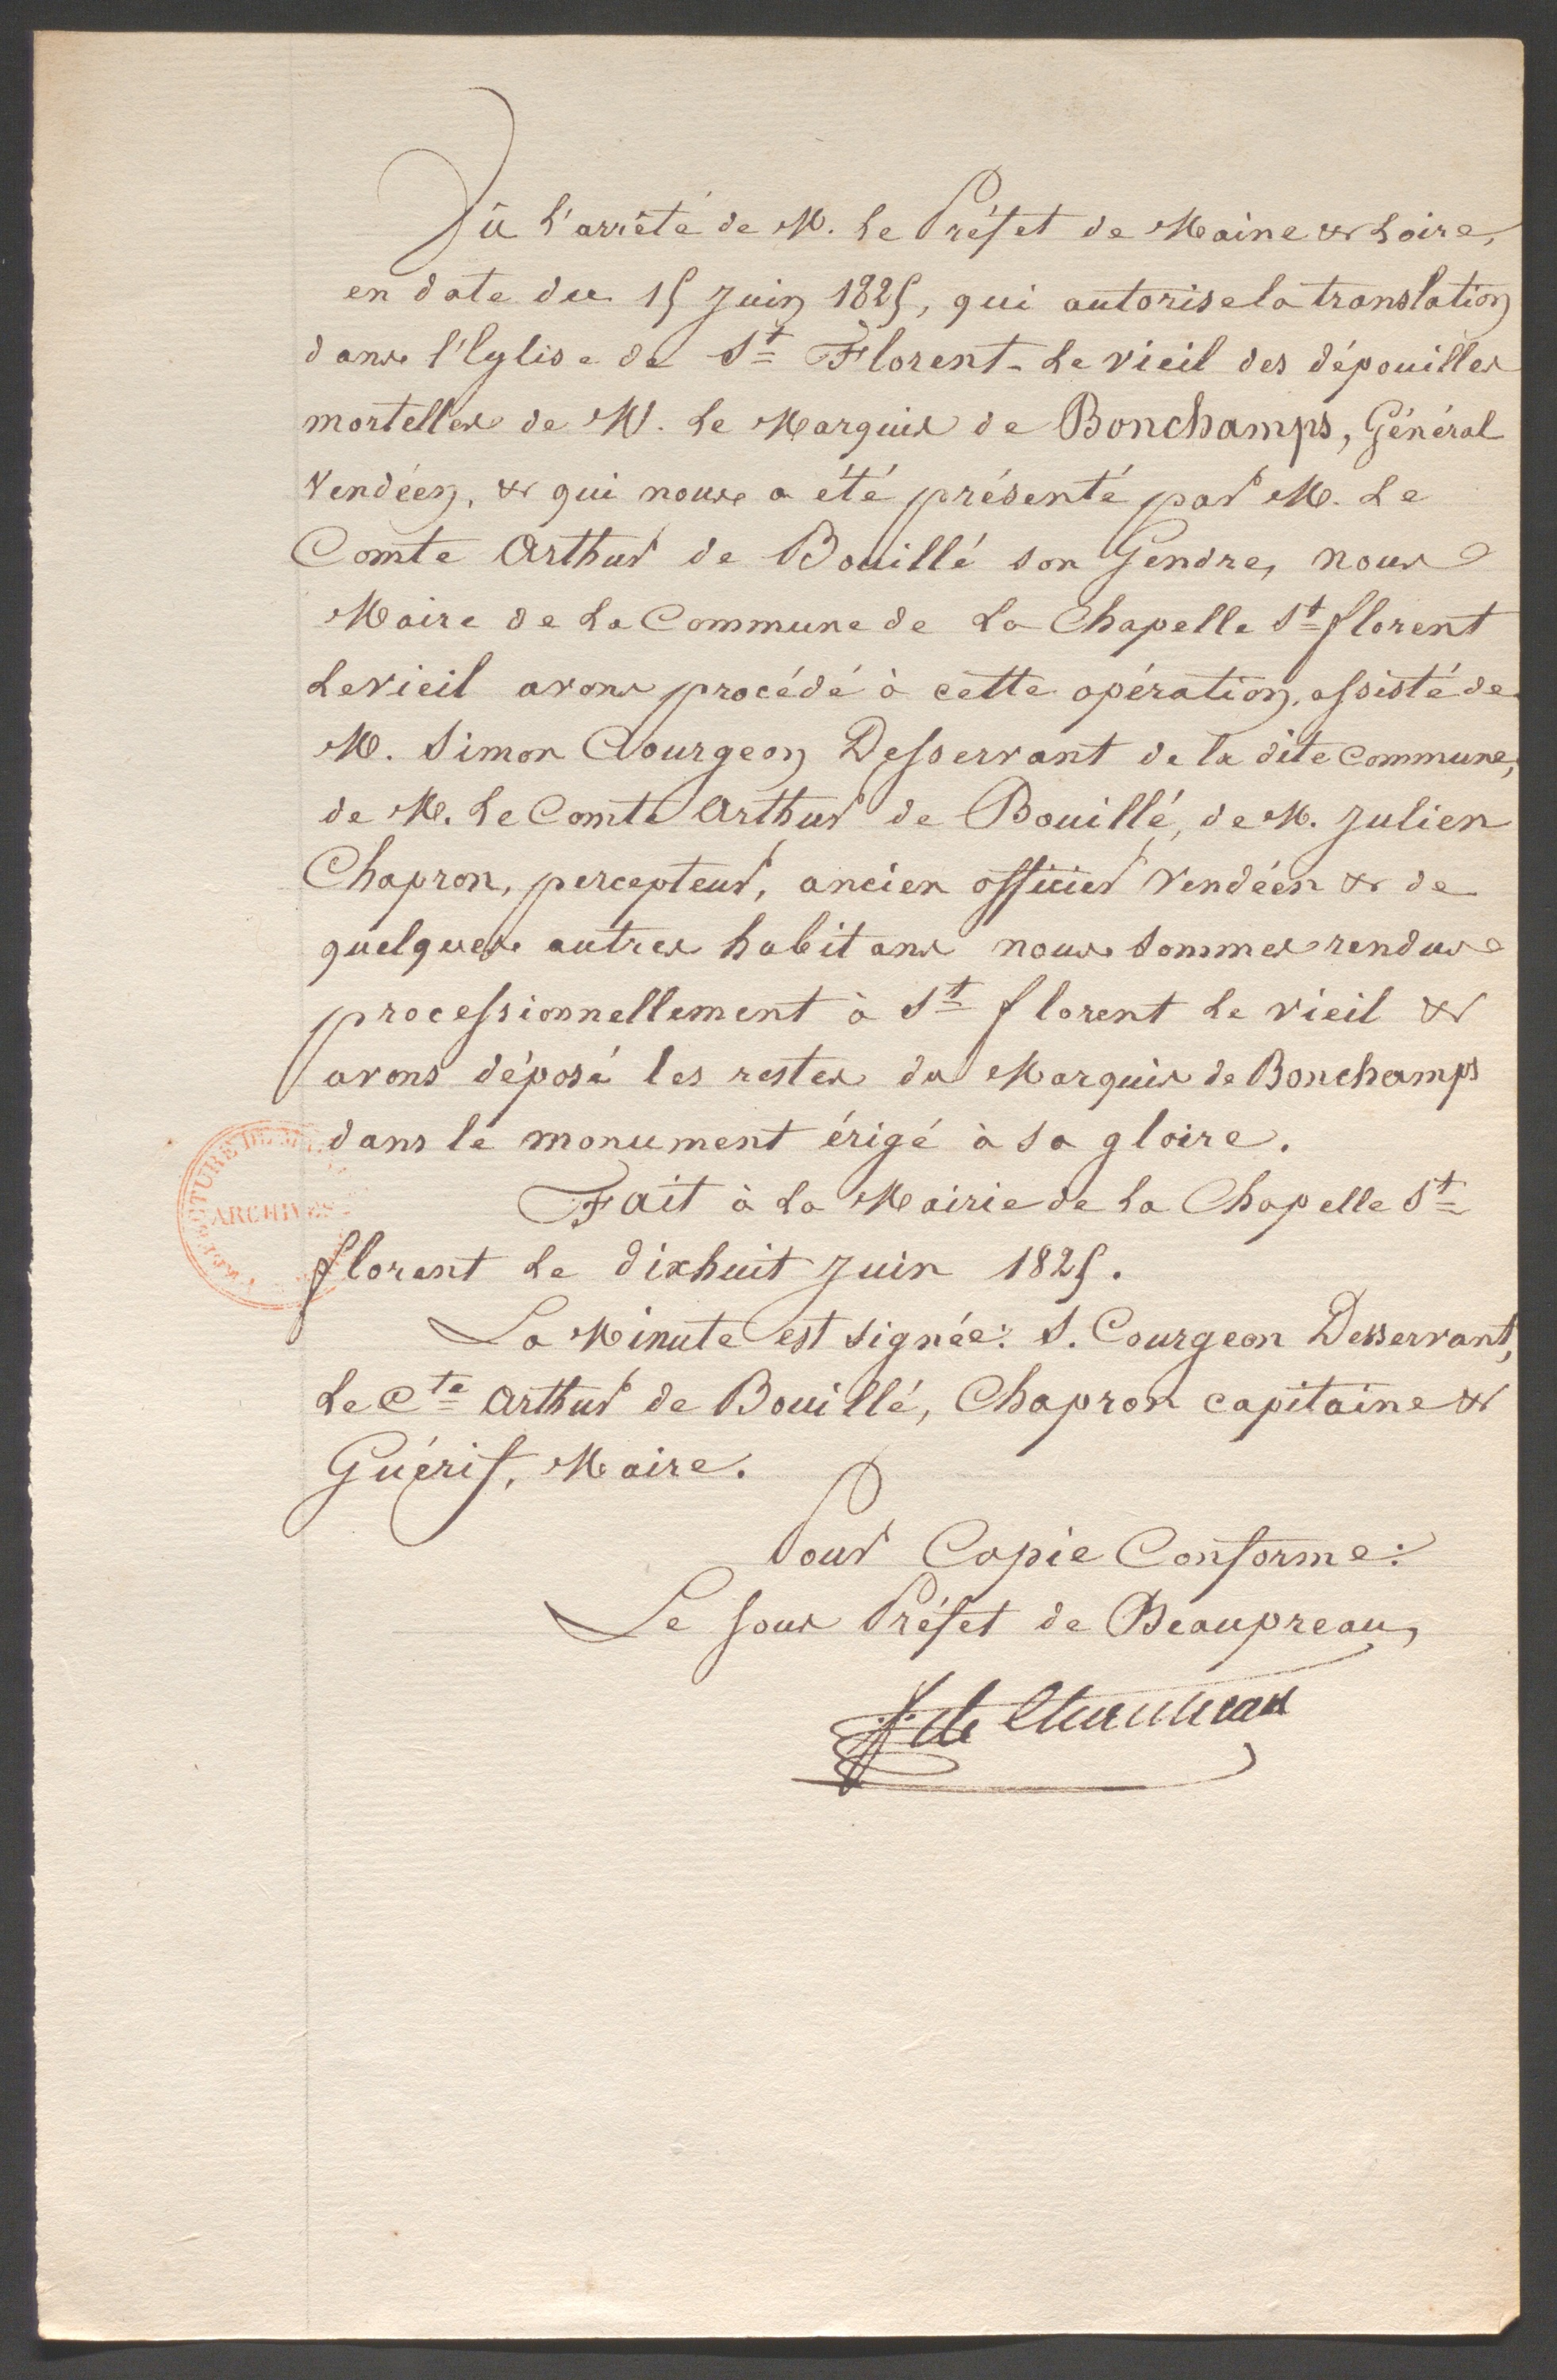 Vû l'arrêté de M. Le Préfet de Maine & Loire,
en date du 15 Juin 1825, qui autorise la translation
dans l'Eglise de St Florent-Le vieil des dépouilles
mortelles de M. Le Marquis de Bonchamps, Général
Vendéen, & qui nous a été présenté par M. Le
Comte Arthur de Bouillé son Gendre, nous
Maire de La Commune de La Chapelle St florent
Le vieil avons procédé à cette opération, assisté de
M. Simon Courgeon Desservant de la dite commune,
de M. Le Comte Arthur de Bouillé, de M. Julien
Chapron, percepteur, ancien officier Vendéen & de
quelques autres habitans nous sommes rendus
processionnellement à St florent Le vieil &
avons déposé les restes du Marquis de Bonchamps
dans le monument érigé à sa gloire.
Fait à La Mairie de La Chapelle St
florent Le dixhuit Juin 1825.
La Minute est signée: S. Courgeon Desservant,
Le Cte Arthur de Bouillé, Chapron capitaine &
Guérif, Maire.
Pour Copie Conforme:
Le sous Préfet de Beaupreau,
PREFECTURE DE
ARCHIVES